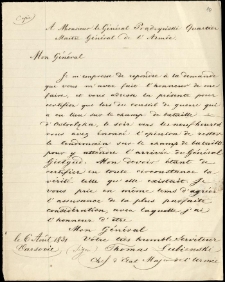 (Copie)
A Monsieur le Général Prądzyński Quartier
Maître Général de l'Armée
Mon Général
Je m'empresse de répondre à la demande
que vous m'avez fait l'honneur de me
faire, et vous adresse la présente pour
certifier que lors du conseil de guerre qui
a eu lieu sur le champ de bataille
d'Ostrołęka le soir vers les neuf heures
vous avez énoncé l'opinion de rester
le lendemain sur le champ de bataille
pour y attendre l'arrivée du Général
Giełgud. Mon devoir étant de
certifier en toute circonstance la
vérité telle que elle existait je
vous prie en même tems d'agréer
l'assurance de la plus parfaite
considération avec laquelle j'ai
l'honneur d'être
Mon Général
le 6 Août 1831 Votre très humble Serviteur
Varsovie Thomas Łubieński
Chef d'Etat Major de l'armée